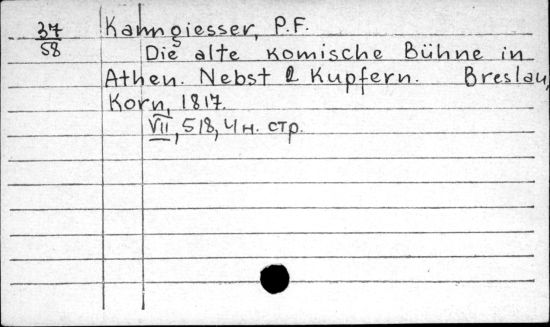 37
58
Kanngiesser, P.F.
Die alte komische Bühne in
Athen. Nebst 2 Kupfern. Breslau,
Korn, 1817.
VII, 518, 4 н. стр.